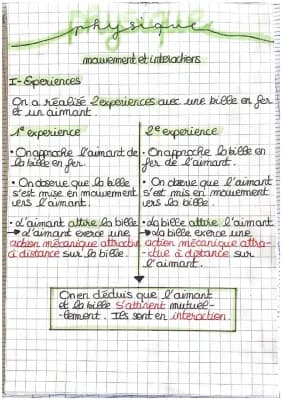 physique
mouvement et interactions
I-Experiences
On a réalisé 2 experiences avec une bille en fer
et un aimant.
1e experience
• On approche l'aimant de
la bille en fer.
• On observe que la bille
s'est mise en mouvement
vers l'aimant.
• L'aimant attire la bille
→ L'aimant exerce une
action mécanique attractive
à distance sur la bille.
2e experience
• On approche la bille en
fer de l'aimant.
• On observe que l'aimant
s'est mis en mouvement
vers la bille.
• La bille attire l'aimant
→ La bille exerce une
action mécanique attra-
-ctive à distance sur
l'aimant.
On en déduis que l'aimant
et la bille s'attirent mutuel-
-lement. Ils sont en interaction.